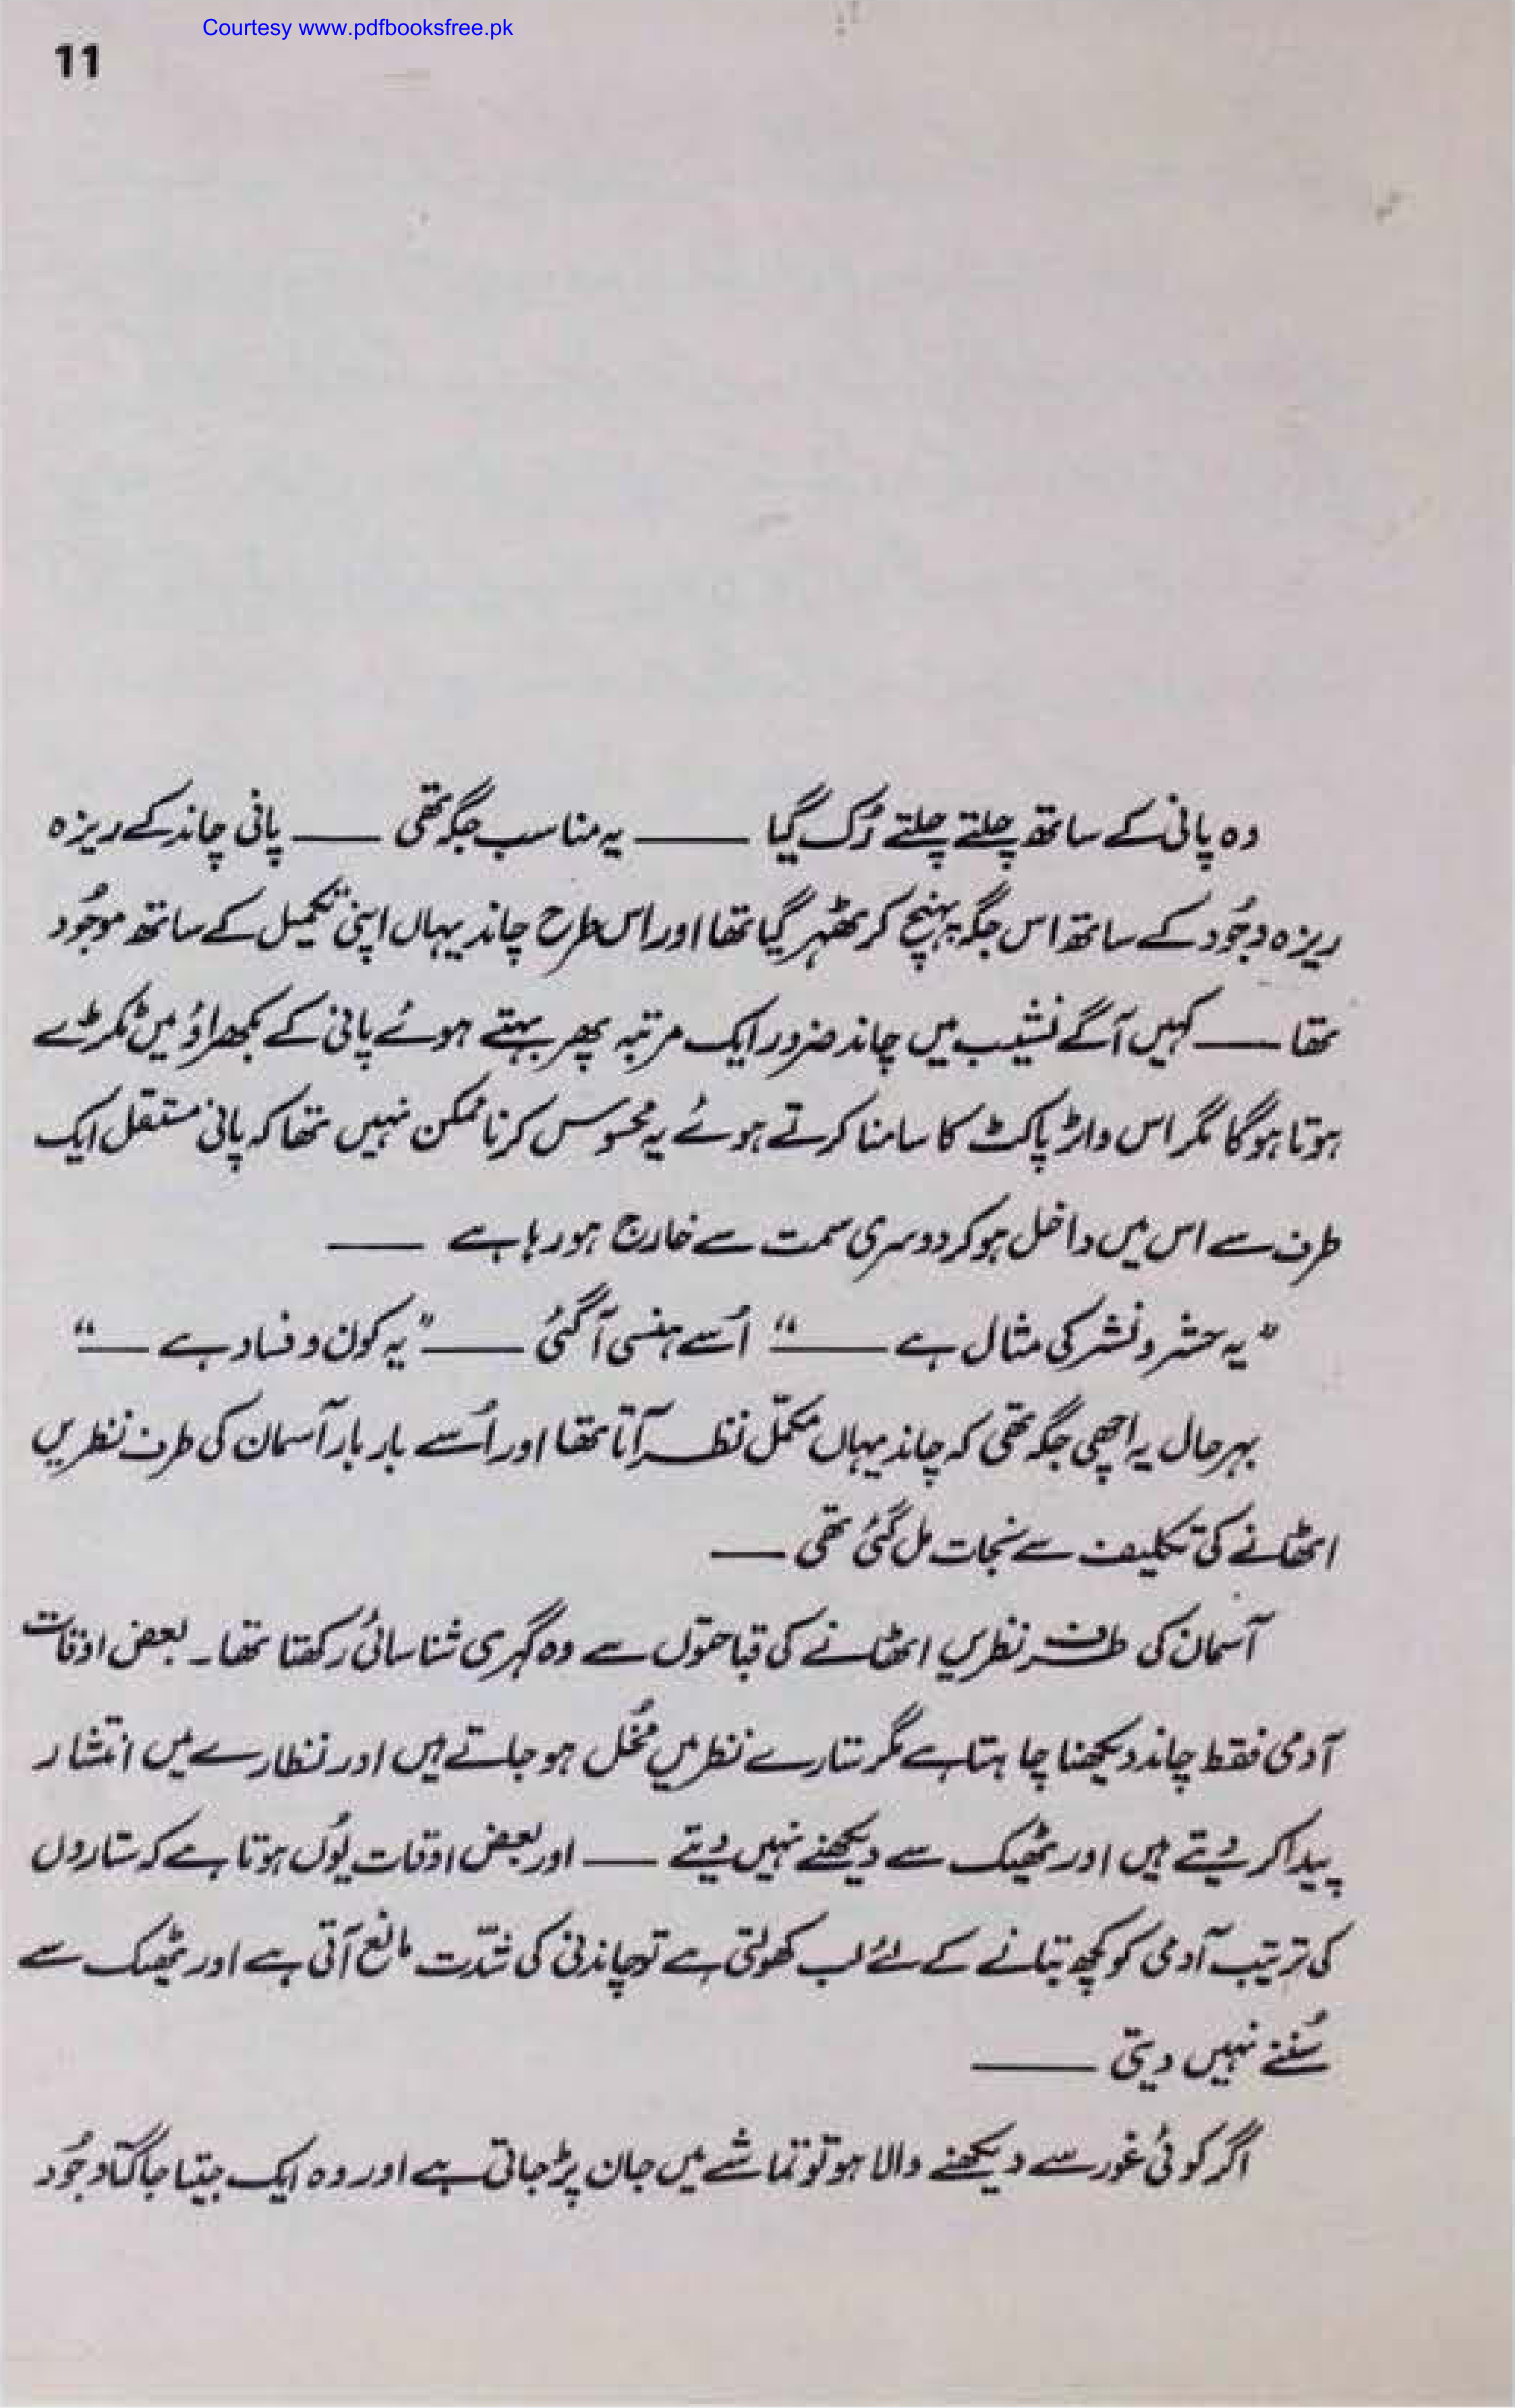 Courtesy www.pdfbooksfree.pk
11
وہ پانی کے ساتھ چلتے چلتے رُک گیا —— یہ مناسب جگہ تھی —— پانی چاند کے ریزہ
ریزہ وجُود کے ساتھ اس جگہ پہنچ کر ٹھہر گیا تھا اور اس طرح چاند یہاں اپنی تکمیل کے ساتھ موجُود
تھا —— کہیں آگے نشیب میں چاند ضرور ایک مرتبہ پھر بہتے ہوئے پانی کے بکھراؤ میں ٹکڑے
ہوتا ہوگا مگر اس واٹر پاکٹ کا سامنا کرتے ہوئے یہ محسوس کرنا ممکن نہیں تھا کہ پانی مستقل ایک
طرف سے اس میں داخل ہو کر دوسری سمت سے خارج ہو رہا ہے ——
”یہ حشر و نشر کی مثال ہے ——“ اُسے ہنسی آ گئی —— ”یہ کون و فساد ہے ——“
بہرحال یہ اچھی جگہ تھی کہ چاند یہاں مکمّل نظر آتا تھا اور اُسے بار بار آسمان کی طرف نظریں
اٹھانے کی تکلیف سے نجات مل گئی تھی ——
آسمان کی طرف نظریں اٹھانے کی قباحتوں سے وہ گہری شناسائی رکھتا تھا۔ بعض اوقات
آدمی فقط چاند دیکھنا چاہتا ہے مگر ستارے نظر میں مُخل ہو جاتے ہیں اور نظارے میں انتشار
پیدا کر دیتے ہیں اور ٹھیک سے دیکھنے نہیں دیتے —— اور بعض اوقات یُوں ہوتا ہے کہ ستاروں
کی ترتیب آدمی کو کچھ بتانے کے لئے لب کھولتی ہے تو چاندنی کی شدّت مانع آتی ہے اور ٹھیک سے
سُننے نہیں دیتی ——
اگر کوئی غور سے دیکھنے والا ہو تو تماشے میں جان پڑ جاتی ہے اور وہ ایک جیتا جاگتا وجُود